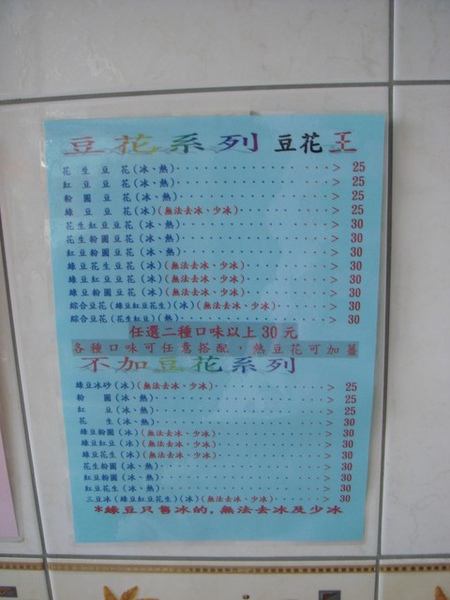 豆花系列 豆花王
花生豆花(冰、熱)··················> 25
紅豆豆花(冰、熱)··················> 25
粉圓豆花(冰、熱)··················> 25
綠豆豆花(冰)(無法去冰、少冰)··················> 25
花生紅豆豆花(冰、熱)··················> 30
花生粉圓豆花(冰、熱)··················> 30
紅豆粉圓豆花(冰、熱)··················> 30
綠豆花生豆花(冰)(無法去冰、少冰)··················> 30
綠豆紅豆豆花(冰)(無法去冰、少冰)··················> 30
綠豆粉圓豆花(冰)(無法去冰、少冰)··················> 30
綜合豆花(綠豆紅豆花生)(冰)(無法去冰、少冰)··········> 30
綜合豆花(花生紅豆)(熱)··················> 30
任選二種口味以上30元
各種口味可任意搭配，熱豆花可加薑
不加豆花系列
綠豆冰砂(冰)(無法去冰、少冰)··················> 25
粉圓(冰、熱)··················> 25
紅豆(冰、熱)··················> 25
花生(冰、熱)··················> 30
綠豆粉圓(冰)(無法去冰、少冰)··················> 30
綠豆紅豆(冰)(無法去冰、少冰)··················> 30
綠豆花生(冰)(無法去冰、少冰)··················> 30
花生粉圓(冰、熱)··················> 30
紅豆粉圓(冰、熱)··················> 30
紅豆花生(冰、熱)··················> 30
三豆冰(綠豆紅豆花生)(冰)(無法去冰、少冰)··········> 30
*綠豆只售冰的，無法去冰及少冰